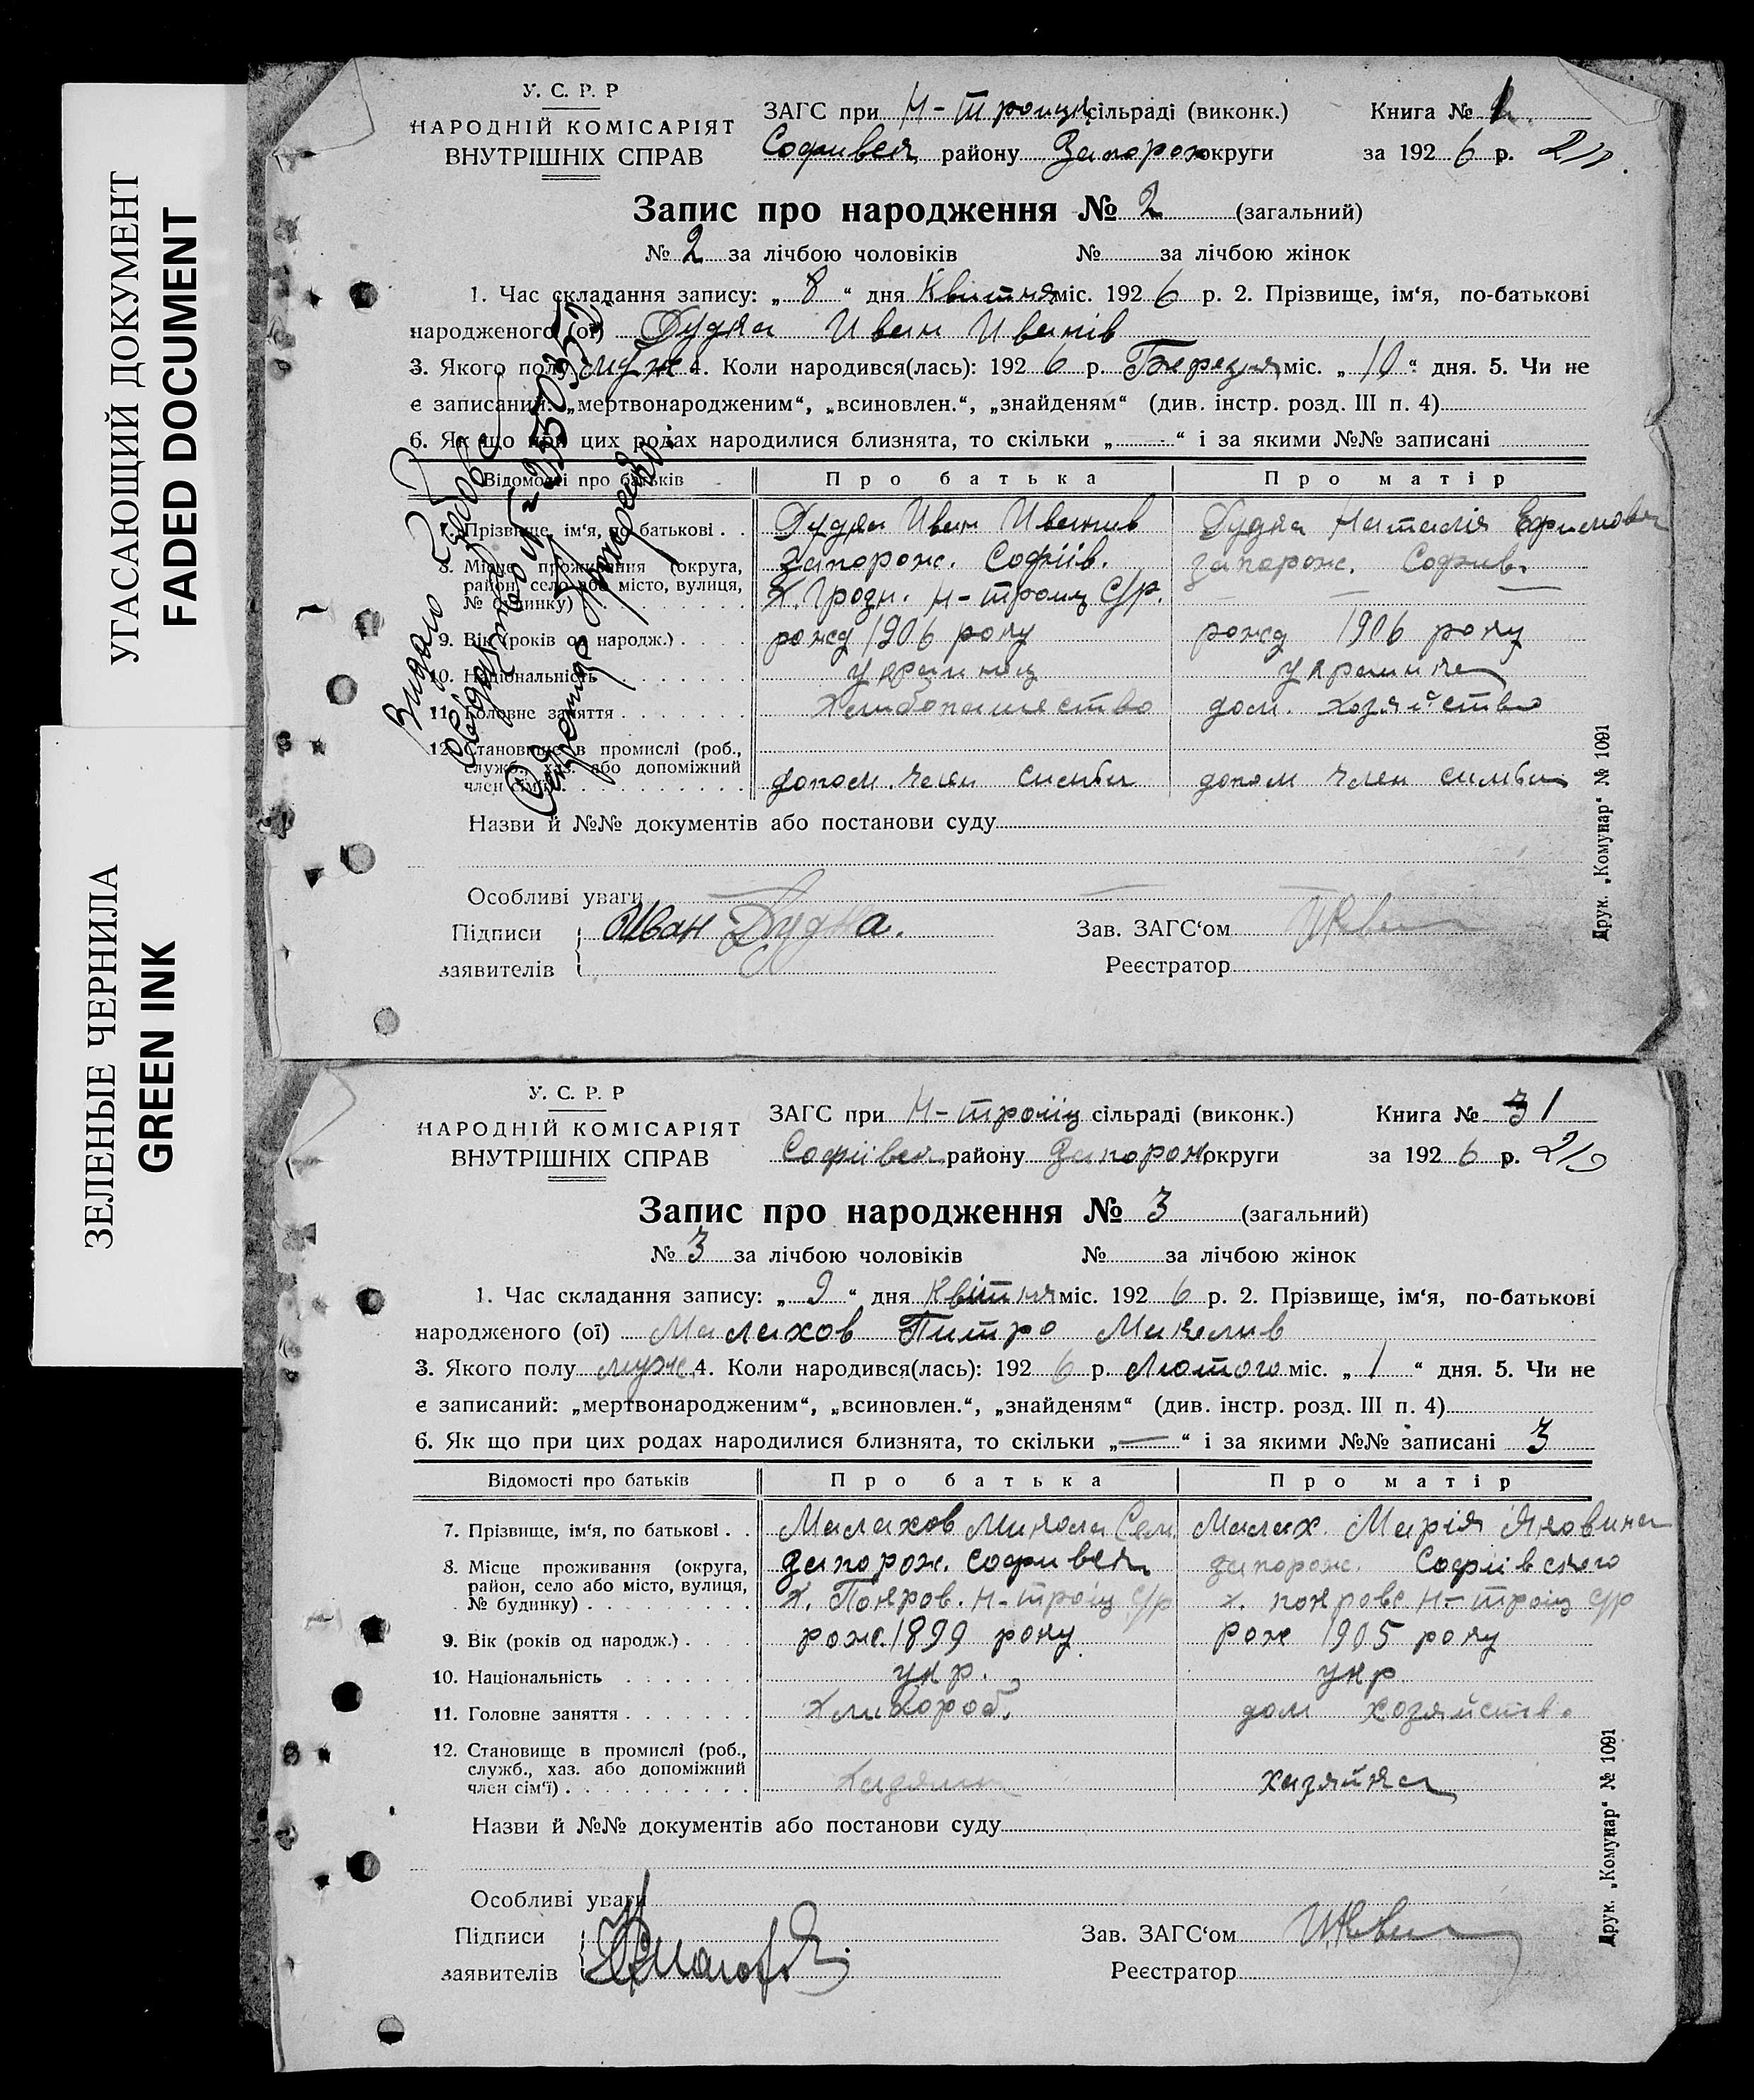 УГАСАЮЩИЙ ДОКУМЕНТ
FADED DOCUMENT
ЗЕЛЕНЫЕ ЧЕРНИЛА
GREEN INK
У. С. Р. Р
НАРОДНІЙ КОМІСАРІЯТ
ВНУТРІШНІХ СПРАВ
ЗАГС при Н-троиц сільраді (виконк.) Книга № 1
району Запорож округи за 192 6 р.
Запис про народження № 2 (загальний)
№ 2 за лічбою чоловіків № за лічбою жінок
1. Час складання запису: „ 8 “ дня Квитня міс. 192 6 р. 2. Прізвище, ім‘я, по-батькові
народженого (ої) Дудка Иван Иванів
3. Якого полу муж 4. Коли народився(лась): 192 6 р. міс. „ 10 “ дня. 5. Чи не
є записаний: „мертвонародженим“, „всиновлен.“, „знайденям“ (див. інстр. розд. III п. 4)
6. Як що при цих родах народилися близнята, то скільки „ - “ і за якими №№ записані
Відомості про батьків Про батька Про матір
7. Прізвище, ім‘я, по батькові . . Дудка Иван Дудка Наталія
8. Місце проживання (округа, запорож. Софіів. запорож. Софиив.
район, село або місто, вулиця,
№ будинку) Н-троиц С/р.
9. Вік (років од народж.) рожд 1906 року рожд 1906 року
10. Національність украинец украинка
11. Головне заняття дом. хозяйство
12. Становище в промислі (роб.,
служб., хаз. або допоміжний
член сім‘ї) допом. член симьи допом член симьи
Назви й №№ документів або постанови суду
Особливі уваги
Підписи Иван Дудка. Зав. ЗАГС‘ом
заявителів Реєстратор
Друк. „Комунар“ № 1091
У. С. Р. Р
НАРОДНІЙ КОМІСАРІЯТ
ВНУТРІШНІХ СПРАВ
ЗАГС при Н-троіц сільраді (виконк.) Книга № 3 1
району Запорож округи за 192 6 р.
Запис про народження № 3 (загальний)
№ 3 за лічбою чоловіків № за лічбою жінок
1. Час складання запису: „ 9 “ дня Квітня міс. 192 6 р. 2. Прізвище, ім‘я, по-батькові
народженого (ої) Малахов Питро
3. Якого полу муж 4. Коли народився(лась): 192 6 р. Лютого міс. „ 1 “ дня. 5. Чи не
є записаний: „мертвонародженим“, „всиновлен.“, „знайденям“ (див. інстр. розд. III п. 4)
6. Як що при цих родах народилися близнята, то скільки „ — “ і за якими №№ записані 3
Відомості про батьків Про батька Про матір
7. Прізвище, ім‘я, по батькові . . Малахов Микола Малах. Марія
8. Місце проживання (округа, запорож. запорож. Софіівского
район, село або місто, вулиця,
№ будинку) х. Покров. Н-троіц с/р х. покровс Н-троіц с/р
9. Вік (років од народж.) рож. 1899 року рож 1905 року
10. Національність укр. укр
11. Головне заняття дом хозяйство
12. Становище в промислі (роб.,
служб., хаз. або допоміжний
член сім‘ї) хазяйка
Назви й №№ документів або постанови суду
Особливі уваги
Підписи Зав. ЗАГС‘ом
заявителів Реєстратор
Друк. „Комунар“ № 1091